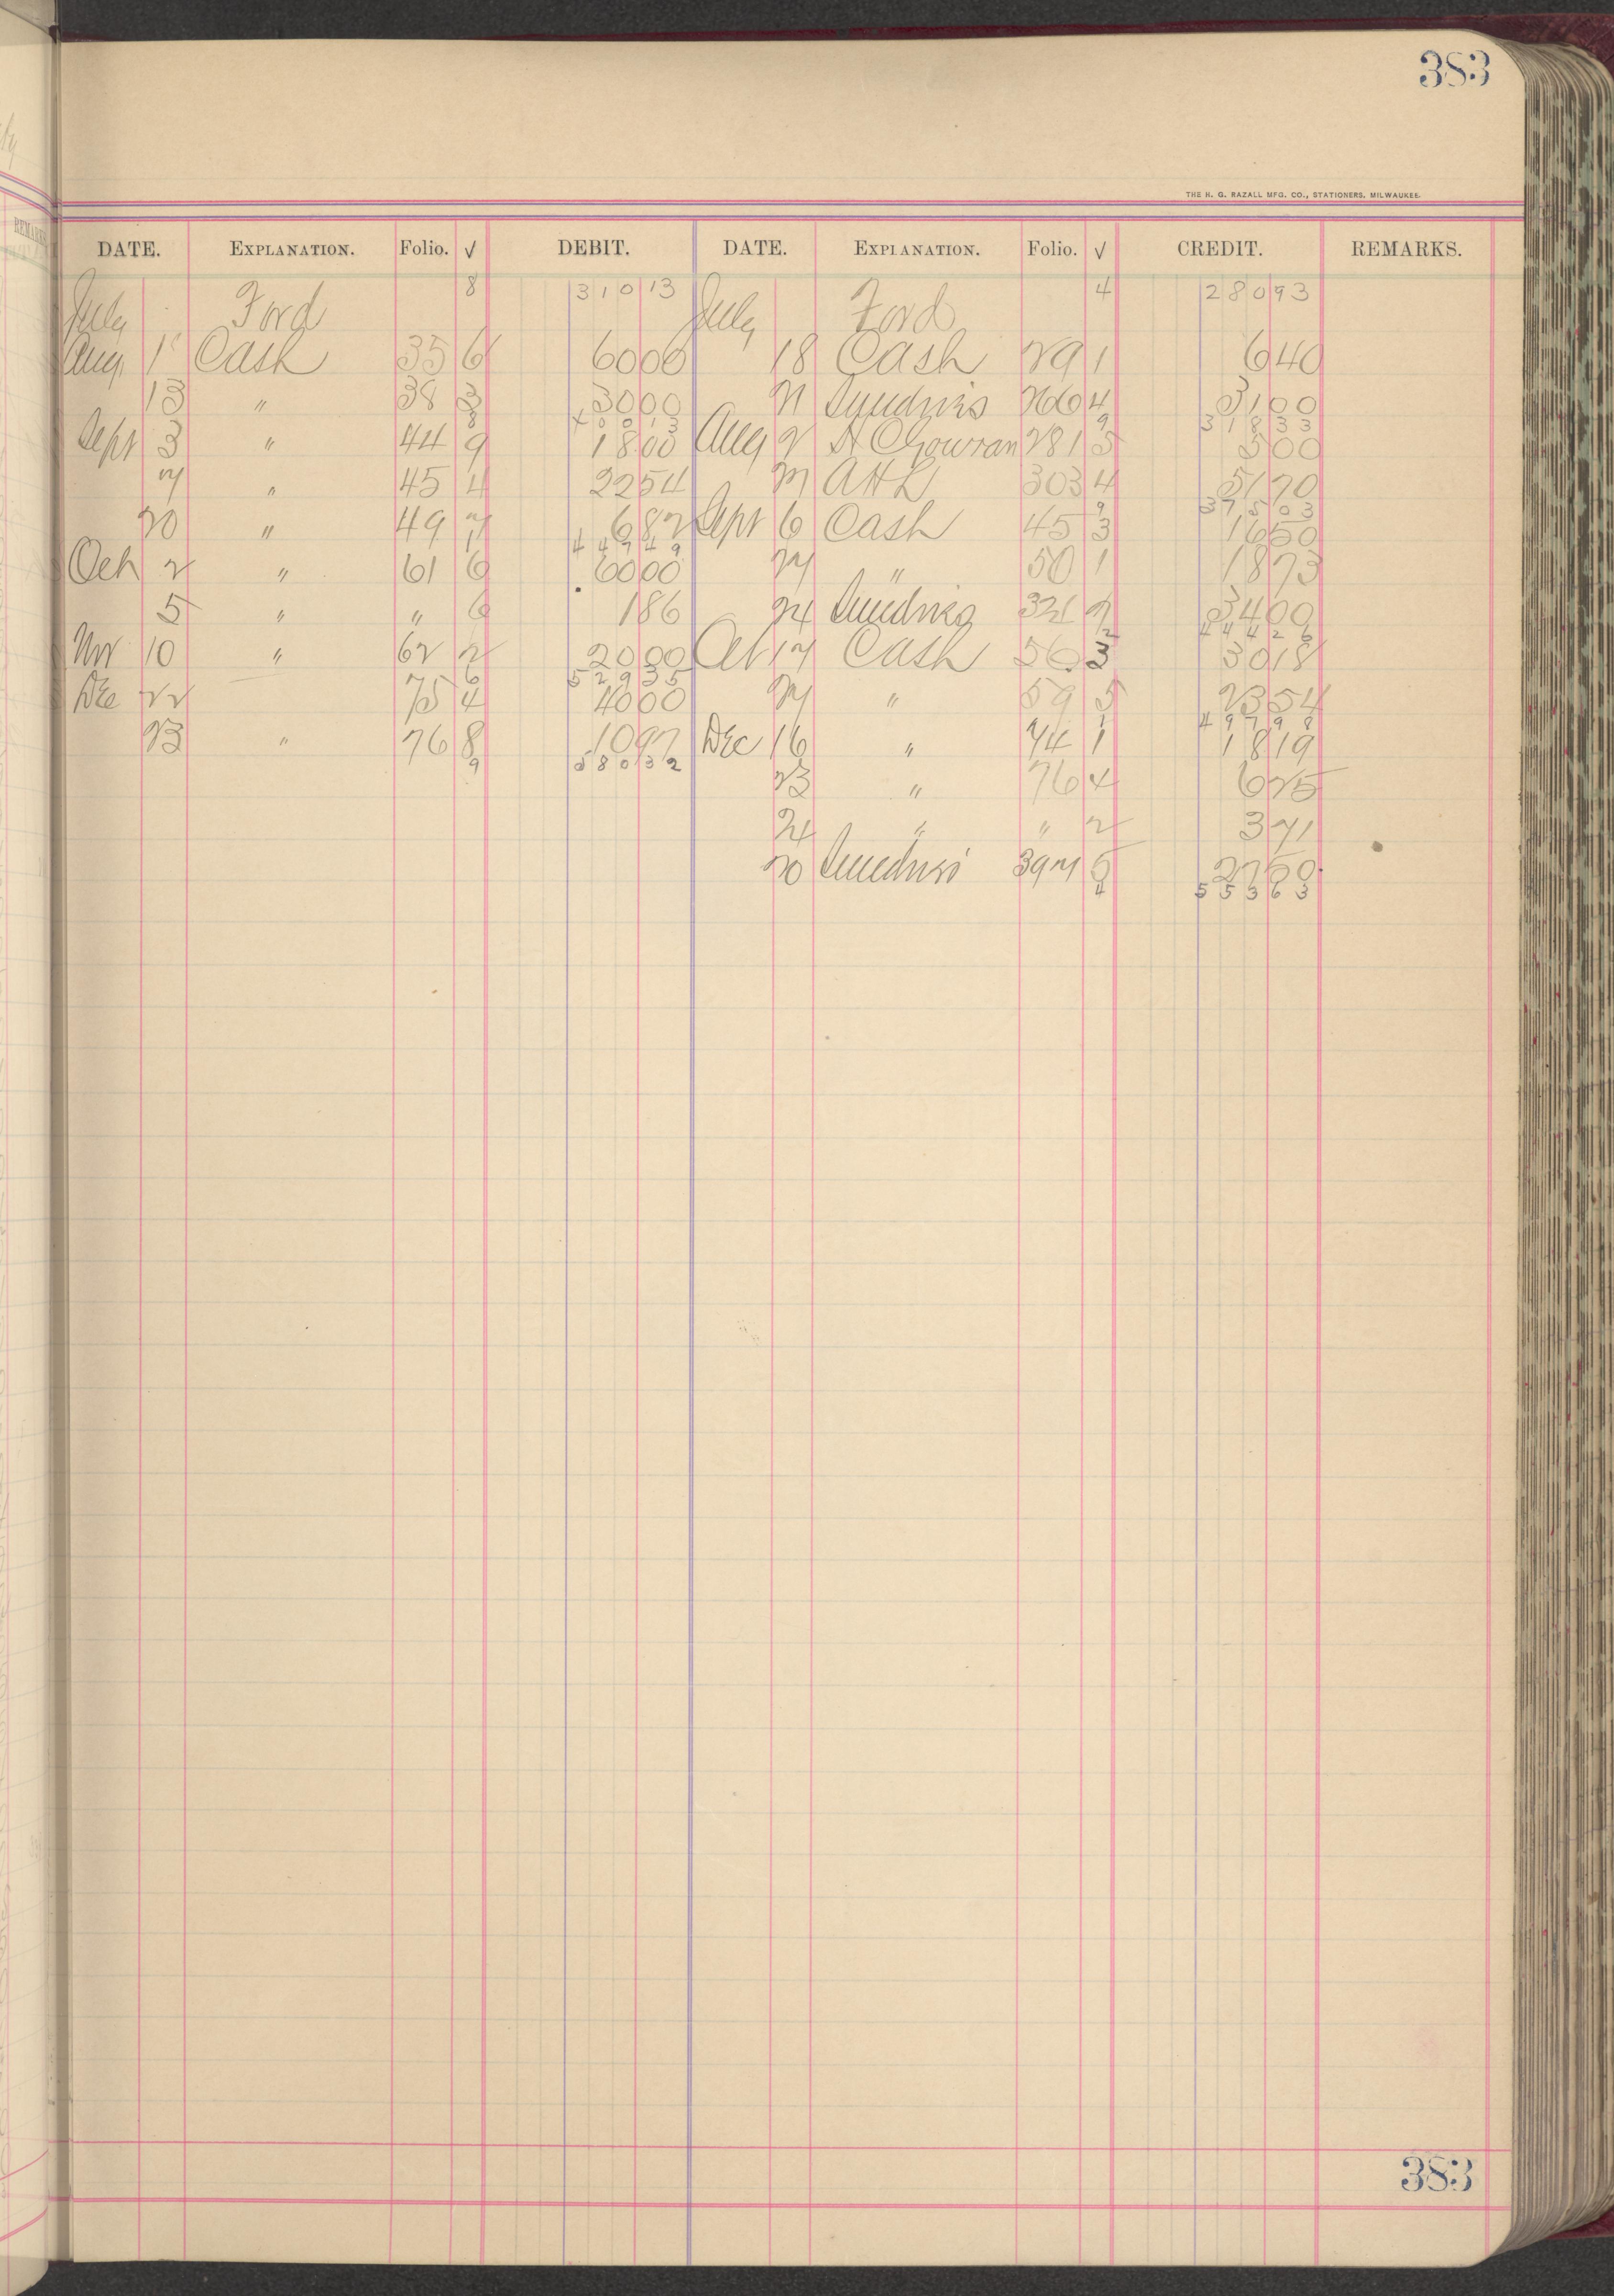 383
THE H. G. RAZALL MFG. CO., STATIONERS, MILWAUKEE.
DATE. EXPLANATION. Folio. √ DEBIT. DATE. EXPLANATION. Folio. √ CREDIT. REMARKS.
July Ford 8 310 13 July Ford 4 280 93
Aug 1 Cash 35 6 60 00 18 Cash 29 1 6 40
13 " 38 3 30 00 21 Sundries 266 4 31 00
8 400 13 9 318 33
Sept 3 " 44 9 18 00 Aug 2 281 5 5 00
7 " 45 4 22 54 27 303 4 51 70
9 375 03
20 " 49 7 6 82 Sept 6 Cash 45 3 16 50
1 447 49
Oct 2 " 61 6 60 00 27 " 50 1 18 73
5 " " 6 1 86 24 Sundries 321 7 34 00
2 444 26
Nov 10 " 62 2 20 00 Oct 17 Cash 56 3 30 18
6 529 35
Dec 22 75 4 40 00 27 " 59 5 23 54
1 497 98
23 " 76 8 10 97 Dec 16 " 74 1 18 19
9 580 32
23 " 76 4 6 25
24 " " 2 3 71
20 Sundries 397 5 27 50
4 553 63
383